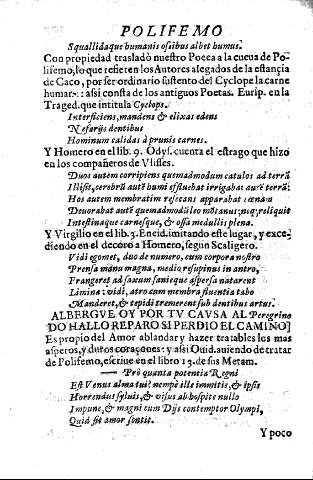 POLIFEMO
Squallidaque humanis ossibus albet humus.
Con propiedad trasladò nuestro Poeta a la cueua de Po-
lifemo, lo que refieren los Autores alegados de la estançia
de Caco, por ser ordinario sustento del Cyclope la carne
humana: assi consta de los antiguos Poetas. Eurip. en la
Traged. que intitula Cyclops.
Interficiens, mandens & elixas edens
Nefarijs dentibus
Hominum calidas à prunis carnes.
Y Homero en el lib. 9. Odys. cuenta el estrago que hizo
en los compañeros de Vlisses.
Duos autem corripiens quemadmodum catulos ad terrã
Illisit, cerebrũ autẽ humi effluebat irrigabat autẽ terrã:
Hos autem membratim resecans apparabat cœnam
Deuorabat autẽ quemadmodũ leo mõtanus; neq; reliquit
Intestinaque carnesque, & ossa medullis plena.
Y Virgilio en el lib. 3. Eneid. imitando este lugar, y exce-
diendo en el decoro a Homero, segun Scaligero.
Vidi egomet, duo de numero, cum corpora nostro
Prensa manu magna, medio resupinus in antro,
Frangeret ad saxum sanieque aspersa natarent
Limina: vidi, atro cum membra fluentia tabo
Manderet, & tepidi tremerent sub dentibus artus.
ALBERGVE OY POR TV CAVSA AL Peregrino
DO HALLO REPARO SI PERDIO EL CAMINO]
Es propio del Amor ablandar y hazer tratables los mas
asperos, y duros coraçones: y assi Ouid. auiendo de tratar
de Polifemo, escriue en el libro 13. de sus Metam.
— Prò quanta potentia Regni
Est Venus alma tui? nempè ille immitis, & ipsis
Horrendus syluis, & visus ab hospite nullo
Impune, & magni cum Dijs contemptor Olympi,
Quid sit amor sentit.
Y poco